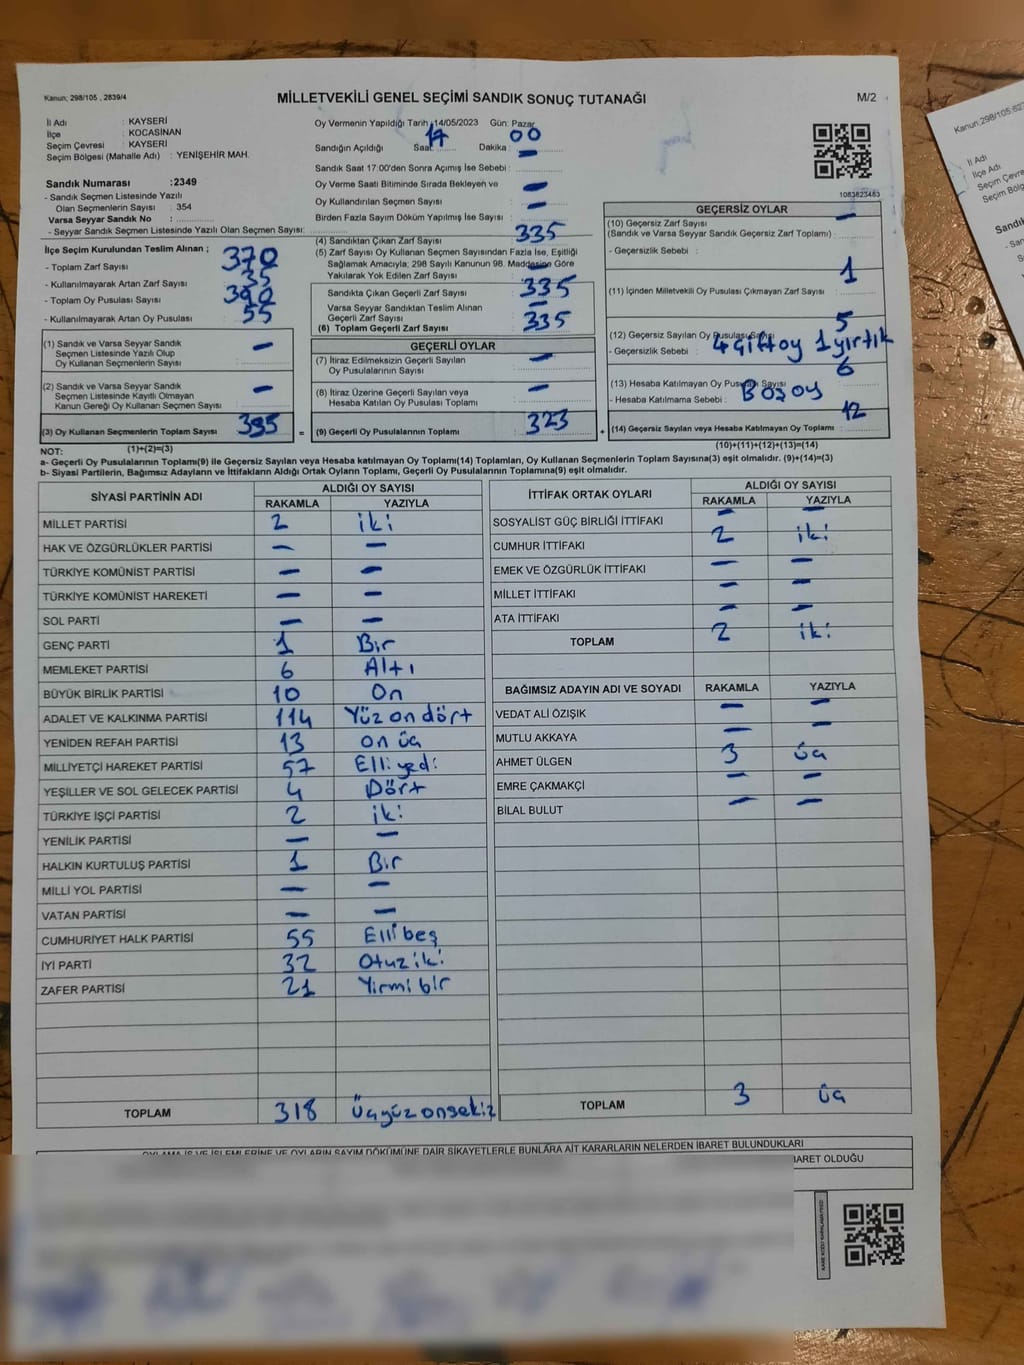 Kanun; 298/105 , 2839/4
MİLLETVEKİLİ GENEL SEÇİMİ SANDIK SONUÇ TUTANAĞI
M/2
İl Adı : KAYSERİ
İlçe : KOCASİNAN
Seçim Çevresi : KAYSERİ
Seçim Bölgesi (Mahalle Adı) : YENİŞEHİR MAH.
Sandık Numarası :2349
- Sandık Seçmen Listesinde Yazılı
Olan Seçmenlerin Sayısı : 354
Varsa Seyyar Sandık No :
- Seyyar Sandık Seçmen Listesinde Yazılı Olan Seçmen Sayısı:
Oy Vermenin Yapıldığı Tarih :14/05/2023 Gün: Pazar
Sandığın Açıldığı Saat: 17 Dakika: 00
Sandık Saat 17:00'den Sonra Açımış İse Sebebi : —
Oy Verme Saati Bitiminde Sırada Bekleyen ve
Oy Kullandırılan Seçmen Sayısı : —
Birden Fazla Sayım Döküm Yapılmış İse Sayısı : —
1083823483
İlçe Seçim Kurulundan Teslim Alınan ;
- Toplam Zarf Sayısı : 370
- Kullanılmayarak Artan Zarf Sayısı : 35
- Toplam Oy Pusulası Sayısı : 390
- Kullanılmayarak Artan Oy Pusulası : 55
(1) Sandık ve Varsa Seyyar Sandık
Seçmen Listesinde Yazılı Olup
Oy Kullanan Seçmenlerin Sayısı : —
(2) Sandık ve Varsa Seyyar Sandık
Seçmen Listesinde Kayıtlı Olmayan
Kanun Gereği Oy Kullanan Seçmen Sayısı : —
(3) Oy Kullanan Seçmenlerin Toplam Sayısı : 335
(1)+(2)=(3)
(4) Sandıktan Çıkan Zarf Sayısı : 335
(5) Zarf Sayısı Oy Kullanan Seçmen Sayısından Fazla İse, Eşitliği
Sağlamak Amacıyla; 298 Sayılı Kanunun 98. Maddesine Göre
Yakılarak Yok Edilen Zarf Sayısı : —
Sandıkta Çıkan Geçerli Zarf Sayısı : 335
Varsa Seyyar Sandıktan Teslim Alınan
Geçerli Zarf Sayısı : —
(6) Toplam Geçerli Zarf Sayısı : 335
GEÇERLİ OYLAR
(7) İtiraz Edilmeksizin Geçerli Sayılan
Oy Pusulalarının Sayısı : —
(8) İtiraz Üzerine Geçerli Sayılan veya
Hesaba Katılan Oy Pusulası Toplamı : —
= (9) Geçerli Oy Pusulalarının Toplamı : 323
GEÇERSİZ OYLAR
(10) Geçersiz Zarf Sayısı : —
(Sandık ve Varsa Seyyar Sandık Geçersiz Zarf Toplamı) :
- Geçersizlik Sebebi :
(11) İçinden Milletvekili Oy Pusulası Çıkmayan Zarf Sayısı : 1
(12) Geçersiz Sayılan Oy Pusulası Sayısı : 5
- Geçersizlik Sebebi : 4 çift oy 1 yırtık
(13) Hesaba Katılmayan Oy Pusulası Sayısı : 6
- Hesaba Katılmama Sebebi : Boz oy
+ (14) Geçersiz Sayılan veya Hesaba Katılmayan Oy Toplamı : 12
(10)+(11)+(12)+(13)=(14)
NOT:
a- Geçerli Oy Pusulalarının Toplamı(9) ile Geçersiz Sayılan veya Hesaba Katılmayan Oy Toplamı(14) Toplamları, Oy Kullanan Seçmenlerin Toplam Sayısına(3) eşit olmalıdır. (9)+(14)=(3)
b- Siyasi Partilerin, Bağımsız Adayların ve İttifakların Aldığı Ortak Oyların Toplamı, Geçerli Oy Pusulalarının Toplamına(9) eşit olmalıdır.
SİYASİ PARTİNİN ADI ALDIĞI OY SAYISI
RAKAMLA YAZIYLA
MİLLET PARTİSİ 2 iki
HAK VE ÖZGÜRLÜKLER PARTİSİ — —
TÜRKİYE KOMÜNİST PARTİSİ — —
TÜRKİYE KOMÜNİST HAREKETİ — —
SOL PARTİ — —
GENÇ PARTİ 1 Bir
MEMLEKET PARTİSİ 6 Altı
BÜYÜK BİRLİK PARTİSİ 10 On
ADALET VE KALKINMA PARTİSİ 114 Yüz on dört
YENİDEN REFAH PARTİSİ 13 on üç
MİLLİYETÇİ HAREKET PARTİSİ 57 Elli yedi
YEŞİLLER VE SOL GELECEK PARTİSİ 4 Dört
TÜRKİYE İŞÇİ PARTİSİ 2 iki
YENİLİK PARTİSİ — —
HALKIN KURTULUŞ PARTİSİ 1 Bir
MİLLİ YOL PARTİSİ — —
VATAN PARTİSİ — —
CUMHURİYET HALK PARTİSİ 55 Elli beş
İYİ PARTİ 32 Otuz iki
ZAFER PARTİSİ 21 Yirmi bir
TOPLAM 318 Üçyüz onsekiz
İTTİFAK ORTAK OYLARI ALDIĞI OY SAYISI
RAKAMLA YAZIYLA
SOSYALİST GÜÇ BİRLİĞİ İTTİFAKI — —
CUMHUR İTTİFAKI 2 iki
EMEK VE ÖZGÜRLÜK İTTİFAKI — —
MİLLET İTTİFAKI — —
ATA İTTİFAKI — —
TOPLAM 2 iki
BAĞIMSIZ ADAYIN ADI VE SOYADI RAKAMLA YAZIYLA
VEDAT ALİ ÖZIŞIK — —
MUTLU AKKAYA — —
AHMET ÜLGEN 3 üç
EMRE ÇAKMAKÇİ — —
BİLAL BULUT — —
TOPLAM 3 üç
OYLAMA İŞ VE İŞLEMLERİNE VE OYLARIN SAYIM DÖKÜMÜNE DAİR ŞİKAYETLERLE BUNLARA AİT KARARLARIN NELERDEN İBARET BULUNDUKLARI
BARET OLDUĞU
Kanun;298/105;62
İl Adı
İlçe Adı
Seçim Çevre
Seçim Böl
Sandı
- San